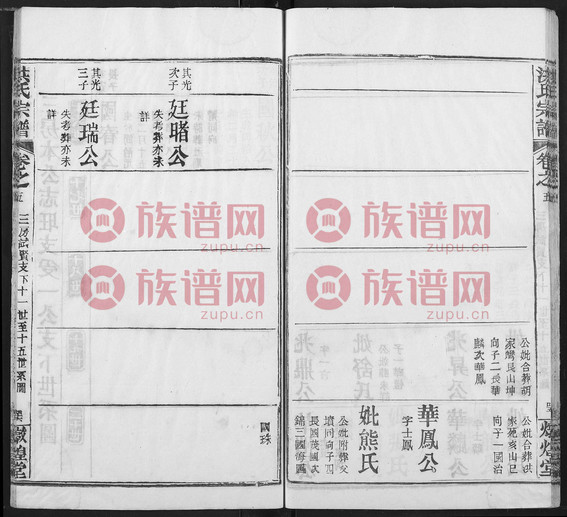 洪氏宗譜
卷之五
燉煌堂
公妣合葬胡
家灣艮山坤
向子二長華
麟次華鳳
公妣合葬洪
家苑亥山巳
向子一國治
華鳳公
字士鳳
妣熊氏
公妣附葬父
墳同向子四
長國茂國次
錦三國海四
國珠
其光
次子
廷瑎公
失考葬亦未
詳
其光
三子
廷瑞公
失考葬亦未
詳
洪氏宗譜
卷之五
三房試賢支下十一世至十五世系圖
燉煌堂
族谱网
zupu.cn
族谱网
zupu.cn
族谱网
zupu.cn
族谱网
zupu.cn